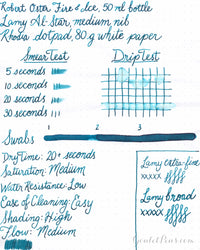 Robert Oster Fire & Ice, 50 ml bottle
Lamy Al-Star, medium nib
Rhodia dotpad, 80 g white paper
Smear Test
Drip Test
5 seconds
10 seconds
20 seconds
30 seconds
1 2 3
Swabs
Dry Time: 20+ seconds
Saturation: Medium
Water Resistance: Low
Ease of Cleaning: Easy
Shading: High
Flow: Medium
Lamy extra-fine
xxxxx
Lamy broad
xxxxx